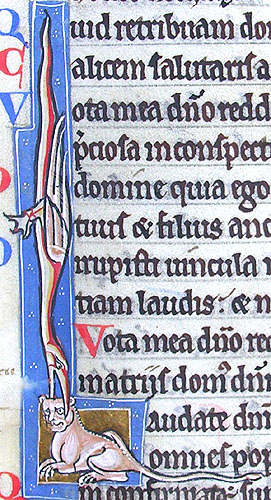 uid retribuam do
alicem salutaris a
ota mea dño redd
p̄ciosa in conspect
domine quia ego
tuus & filius anc
rrupisti uincula
tiam laudis: & n
Vota mea dño re
in atriis dom' dñi
audate dñm
omnes pop